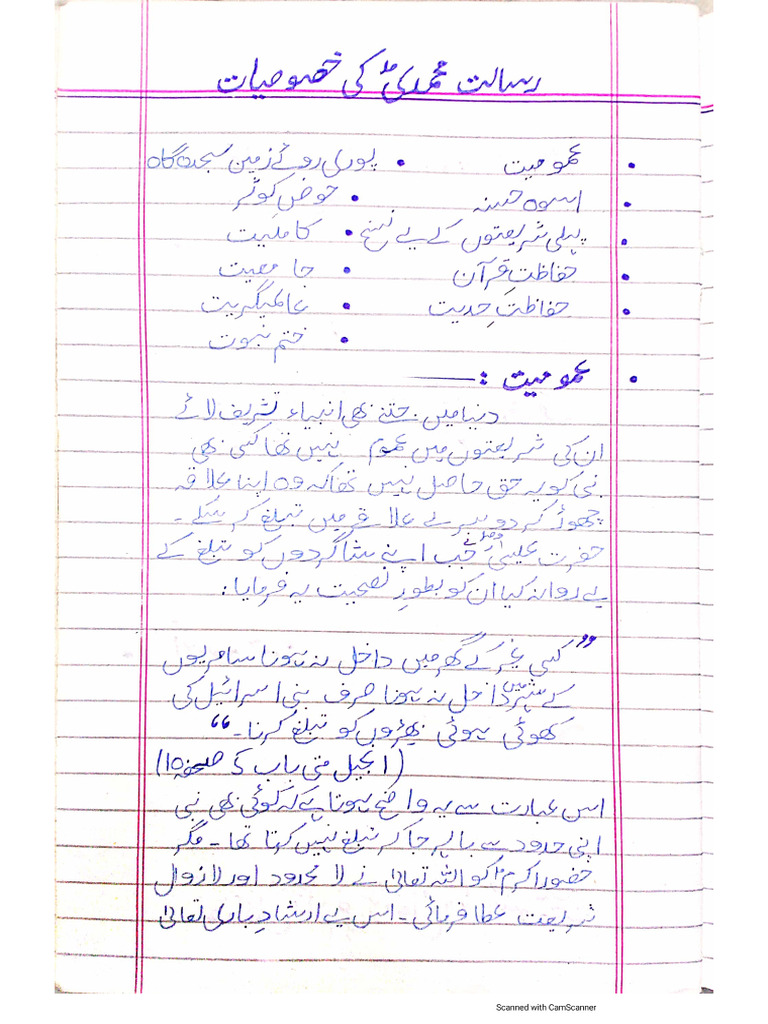 رسالت محمدیؐ کی خصوصیات
• عمومیت • پوری روئے زمین سجدہ گاہ
• اسوہ حسنہ • حوض کوثر
• پہلی شریعتوں کے لیے نسخ • کاملیت
• حفاظت قرآن • جامعیت
• حفاظتِ حدیث • عالمگیریت
• ختم نبوت
• عمومیت :
دنیا میں جتنے بھی انبیاء تشریف لائے
ان کی شریعتوں میں عموم نہیں تھا کسی بھی
نبی کو یہ حق حاصل نہیں تھا کہ وہ اپنا علاقہ
چھوڑ کر دوسرے علاقے میں تبلغ کر سکے۔
حضرت عیسیٰؑ نے جب اپنے شاگردوں کو تبلغ کے
لیے روانہ کیا ان کو بطورِ نصحیت یہ فرمایا:
”کسی غیر کے گھر میں داخل نہ ہونا سامریوں
کے شہر میں داخل نہ ہونا صرف بنی اسرائیل کی
کھوئی ہوئی بھیڑوں کو تبلغ کرنا۔“
(انجیل متی باب 5 صفحہ 10)
اس عبارت سے یہ واضح ہوتا ہے کہ کوئی بھی نبی
اپنی حدود سے باہر جا کر تبلغ نہیں کرتا تھا۔ مگر
حضور اکرمؐ کو اللہ تعالیٰ نے لا محدود اور لازوال
شریعت عطا فرمائی۔ اس لیے ارشادِ باری تعالیٰ
Scanned with CamScanner